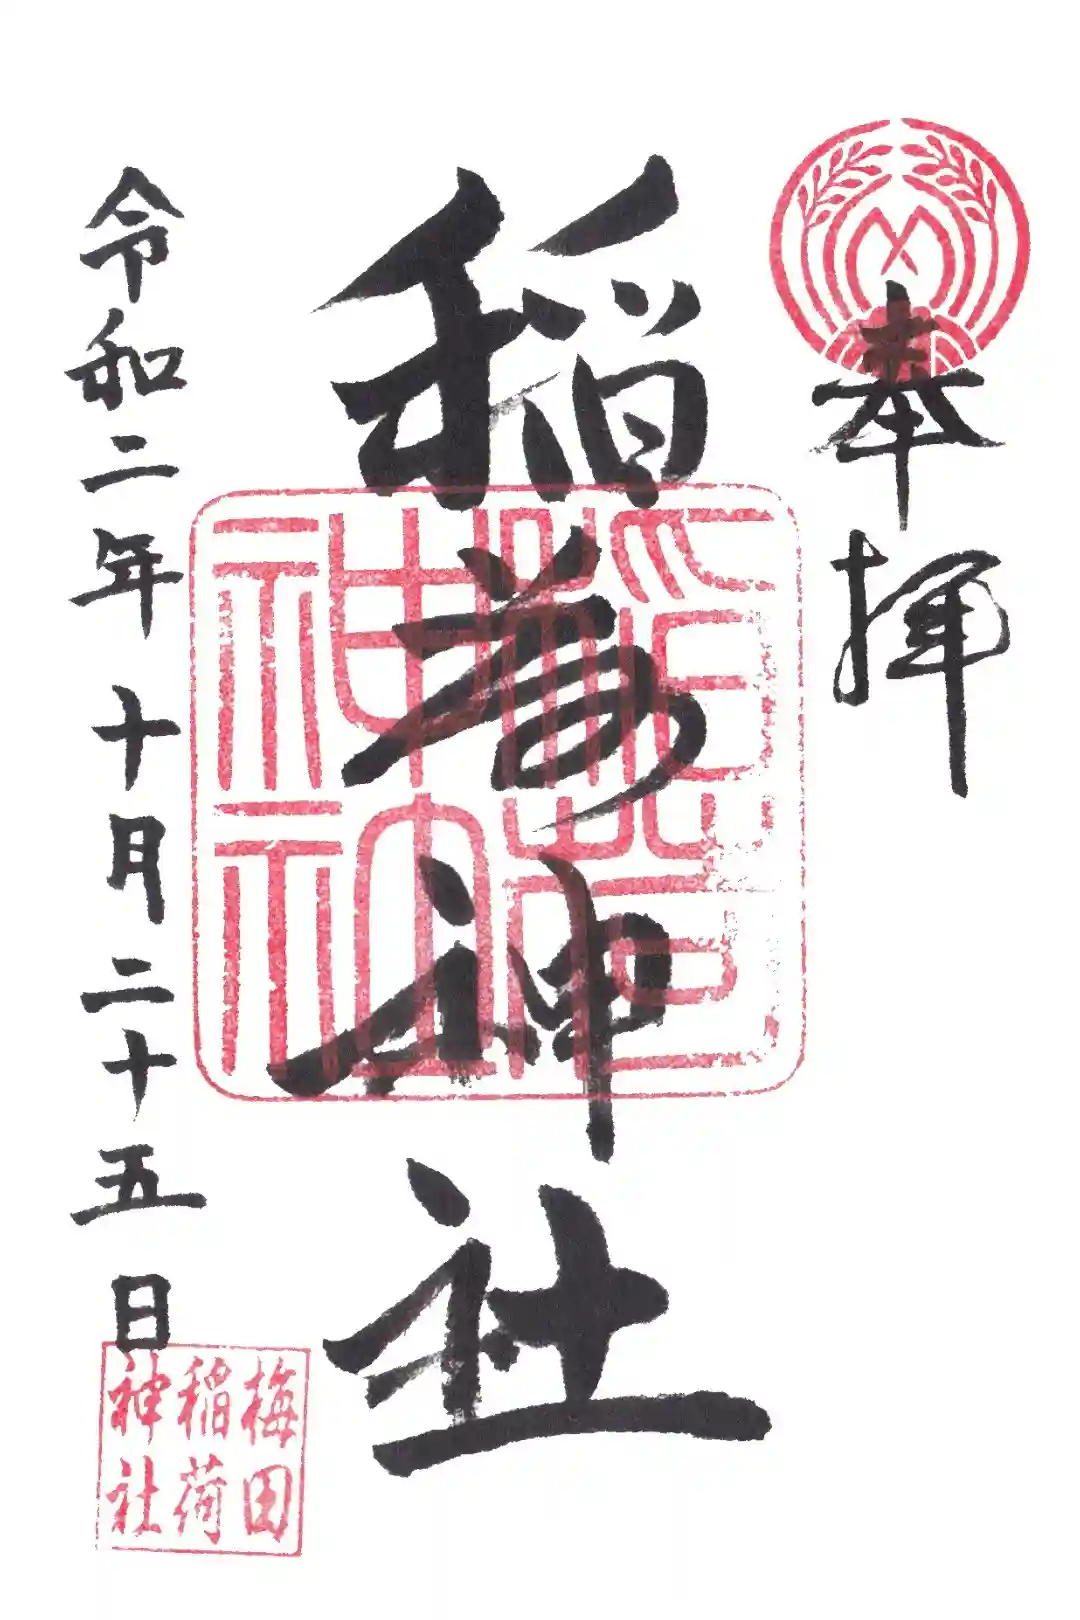 奉拝
稲荷神社
稲荷神社
令和二年十月二十五日
梅田
稲荷
神社